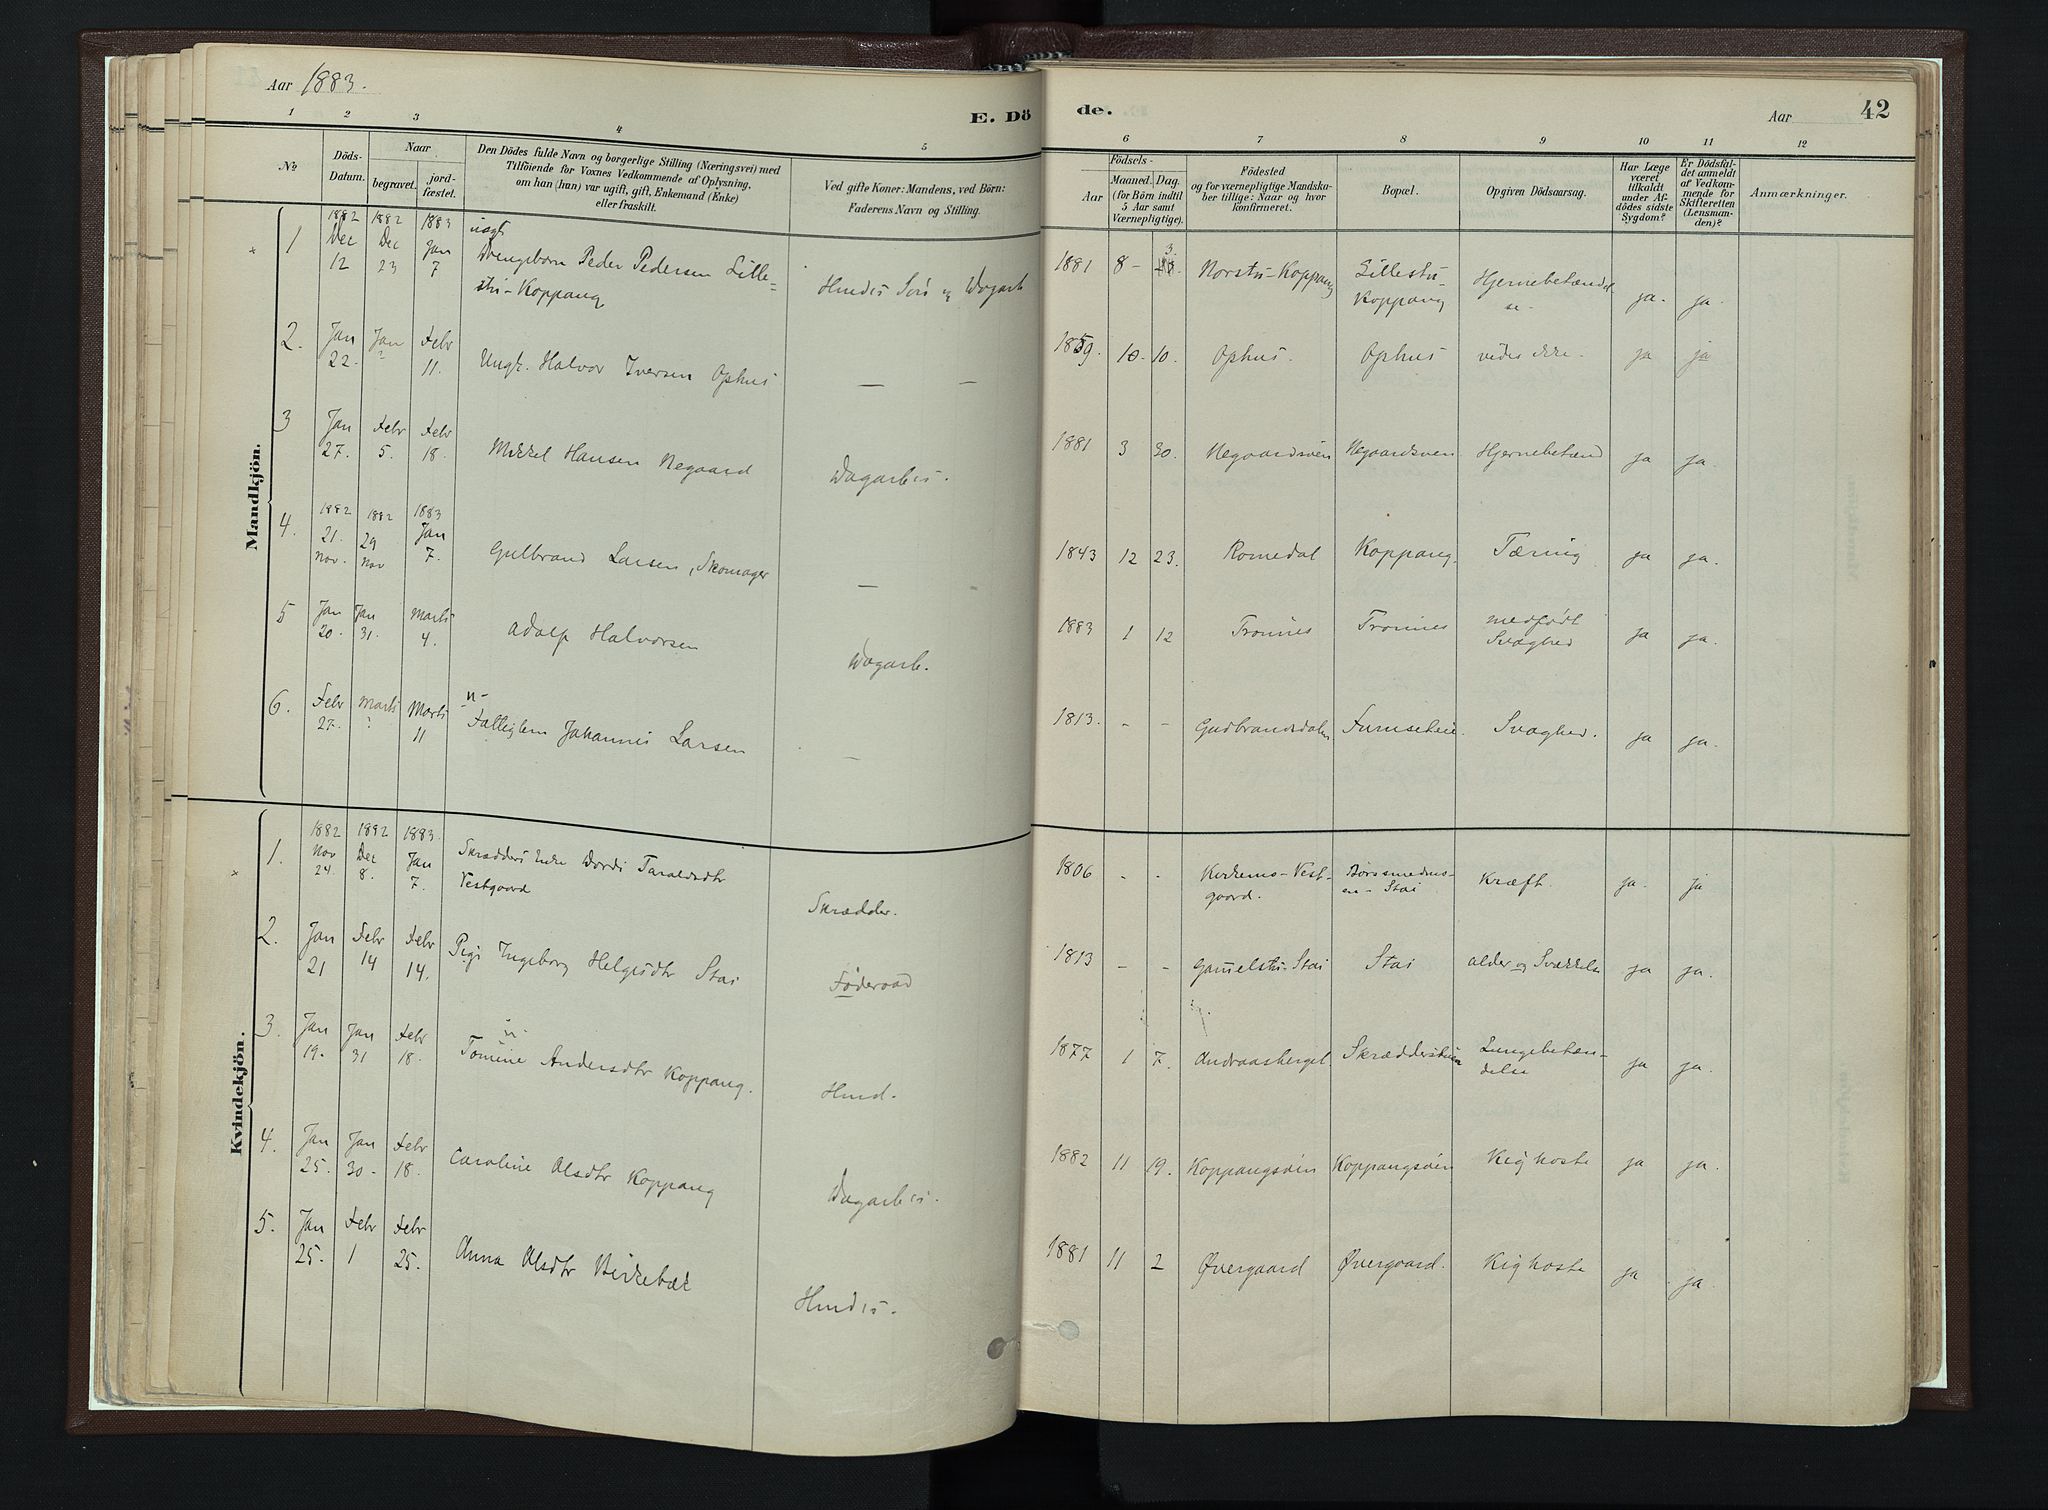 Aar 1883.
E. Dö
de.
Aar
42
1 2 3 4 5 6 7 8 9 10 11 12
No
Döds-
Datum.
Naar
begravet.
jord-
fæstet.
Den Dödes fulde Navn og borgerlige Stilling (Næringsvei) med
Tilföiende for Voxnes Vedkommende af Oplysning,
om han (hun) var ugift, gift, Enkemand (Enke)
eller fraskilt.
Ved gifte Koner: Mandens, ved Börn:
Faderens Navn og Stilling.
Födsels-
Aar
Maaned.
Dag.
(for Börn indtil
5 Aar samt
Værnepligtige).
Födested
og for værnepligtige Mandska-
ber tillige: Naar og hvor
konfirmeret.
Bopæl.
Opgiven Dödsaarsag.
Har Læge
været
tilkaldt
under Af-
dödes sidste
Sygdom?
Er Dödsfal-
det anmeldt
af Vedkom-
mende for
Skifteretten
(Lensman-
den)?
Anmærkninger.
Mandkjön.
1 1882 Dec 12 1882 Dec 23 1883 Jan 7 uægt
Drengebarn Peder Pedersen Lille-
stu-Koppang
Dagarb
1881 8 - 3 Norstu-Koppang
Lillestu-
Koppang
Hjernebetændel
se-
ja. ja.
2. Jan 22. Jan ? Febr 11. Ungk. Halvor Iversen Ophus — —
1859. 10. 10. Ophus. Ophus vides ikke. ja ja
3 Jan 27. Febr 5. Febr 18. Mikkel Hansen Negaard Dagarbs.
1881 3 30. Negaardsven Negaardsven Hjernebetænd ja ja.
4. 1882 21. nov. 1882 29 nov 1883 Jan 7. Gulbrand Larsen, Skomager —
1843 12 23. Romedal Koppang. Tæring ja ja.
5 Jan 20. Jan 31. Marts 4. Adolf Halvorsen Dagarb.
1883 1 12 Tronnes Tronnes medfødt
Svaghed
ja ja.
6. Febr 27. Marts ? Marts 11 u-
Fattiglem Johannes Larsen -
1813. - - Gudbrandsdalen Furuseteie. Svaghed. ja ja.
Kvindekjön.
1. 1882 Nov 24. 1882 Dec 8. 1883. Jan 7. Skrædders Enke Dordi Taraldsdtr
Vestgaard
Skrædder.
1806 - - Kirkemo-Vest-
gaard.
Stai
Kræft. ja. ja
2. Jan 21 Febr 14 Febr 14. Pige Ingeborg Helgesdtr Stai Føderaad
1813 - - Gamelstu-Stai Stai alder og Svækkelse ja ja.
3. Jan 19. Jan 31 Febr 18. u.
Tomine Andersdtr Koppang. Husd.
1877 1 7. Andraasberget. Skrædderstuen Lungebetæn-
delse
ja ja.
4. Jan 25. Jan 30. Febr 18. Caroline Olsdtr Koppang Dagarbs.
1882 11 19. Koppangsøien Koppangsøien Kighoste ja ja.
5. Jan 25. Febr 1 Febr 25. Anna Olsdtr Birkebæk
1881 11 2 Øvergaard Øvergaard. Kighoste ja ja.